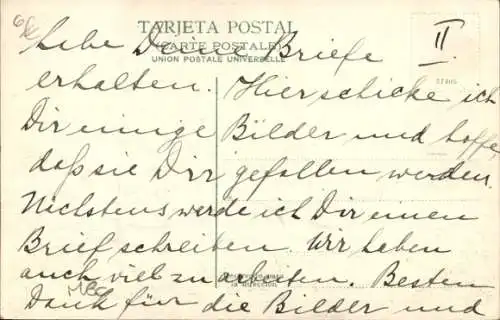 TARJETA POSTAL
(CARTE POSTALE)
UNION POSTALE UNIVERSELLE
II
Habe Deine Briefe
erhalten. Hier schicke ich
Dir einige Bilder und hoffe
daß sie Dir gefallen werden.
Nächstens werde ich Dir einen
Brief schreiben. Wir haben
auch viel zu arbeiten. Besten
Dank für die Bilder und